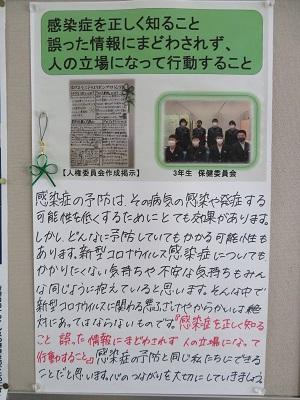 感染症を正しく知ること
誤った情報にまどわされず、
人の立場になって行動すること
【人権委員会作成掲示】
3年生 保健委員会
感染症の予防は、その病気の感染や発症する
可能性を低くするためにとても効果があります。
しかし、どんなに予防していてもかかる可能性も
あります。新型コロナウイルス感染症についても
かかりたくない気持ちや不安な気持ちもみん
な同じように抱えていると思います。そんな中で
新型コロナウイルスに関わる悪ふざけやからかいは絶
対にあってはならないものです。『感染症を正しく知る
こと 誤った情報にまどわされず 人の立場になって
行動すること』感染症の予防と同じ私たちにできる
ことだと思います。心のつながりを大切にしていきましょう